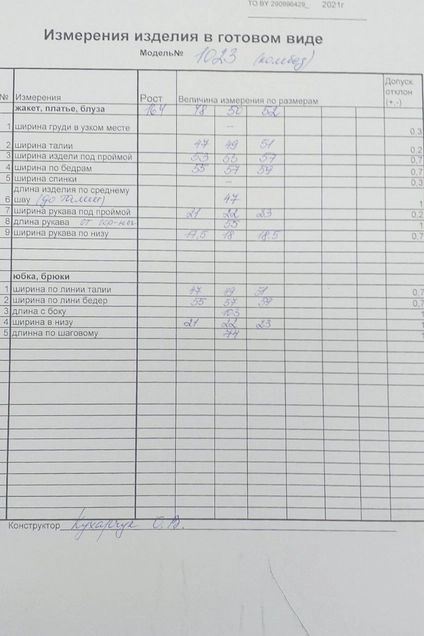 ТО BY 290996429_ 2021г
Измерения изделия в готовом виде
Модель№ 1023 (комбез)
№ Измерения Рост Величина измерения по размерам Допуск отклон (+,-)
жакет, платье, блуза 164 48 50 52
1 ширина груди в узком месте – 0,3
2 ширина талии 47 49 51 0,2
3 ширина издели под проймой 53 55 57 0,7
4 ширина по бедрам 55 57 59 0,7
5 ширина спинки – 0,3
длина изделия по среднему
6 шву (до талии) 47 1
7 ширина рукава под проймой 21 22 23 0,2
8 длина рукава от 55 1
9 ширина рукава по низу 17,5 18 18,5 0,7
юбка, брюки
1 ширина по линии талии 47 49 51 0,7
2 ширина по лини бедер 55 57 59 0,7
3 длина с боку 103 1
4 ширина в низу 21 22 23 1
5 длинна по шаговому 74 1
Конструктор Кухарчук О.В.